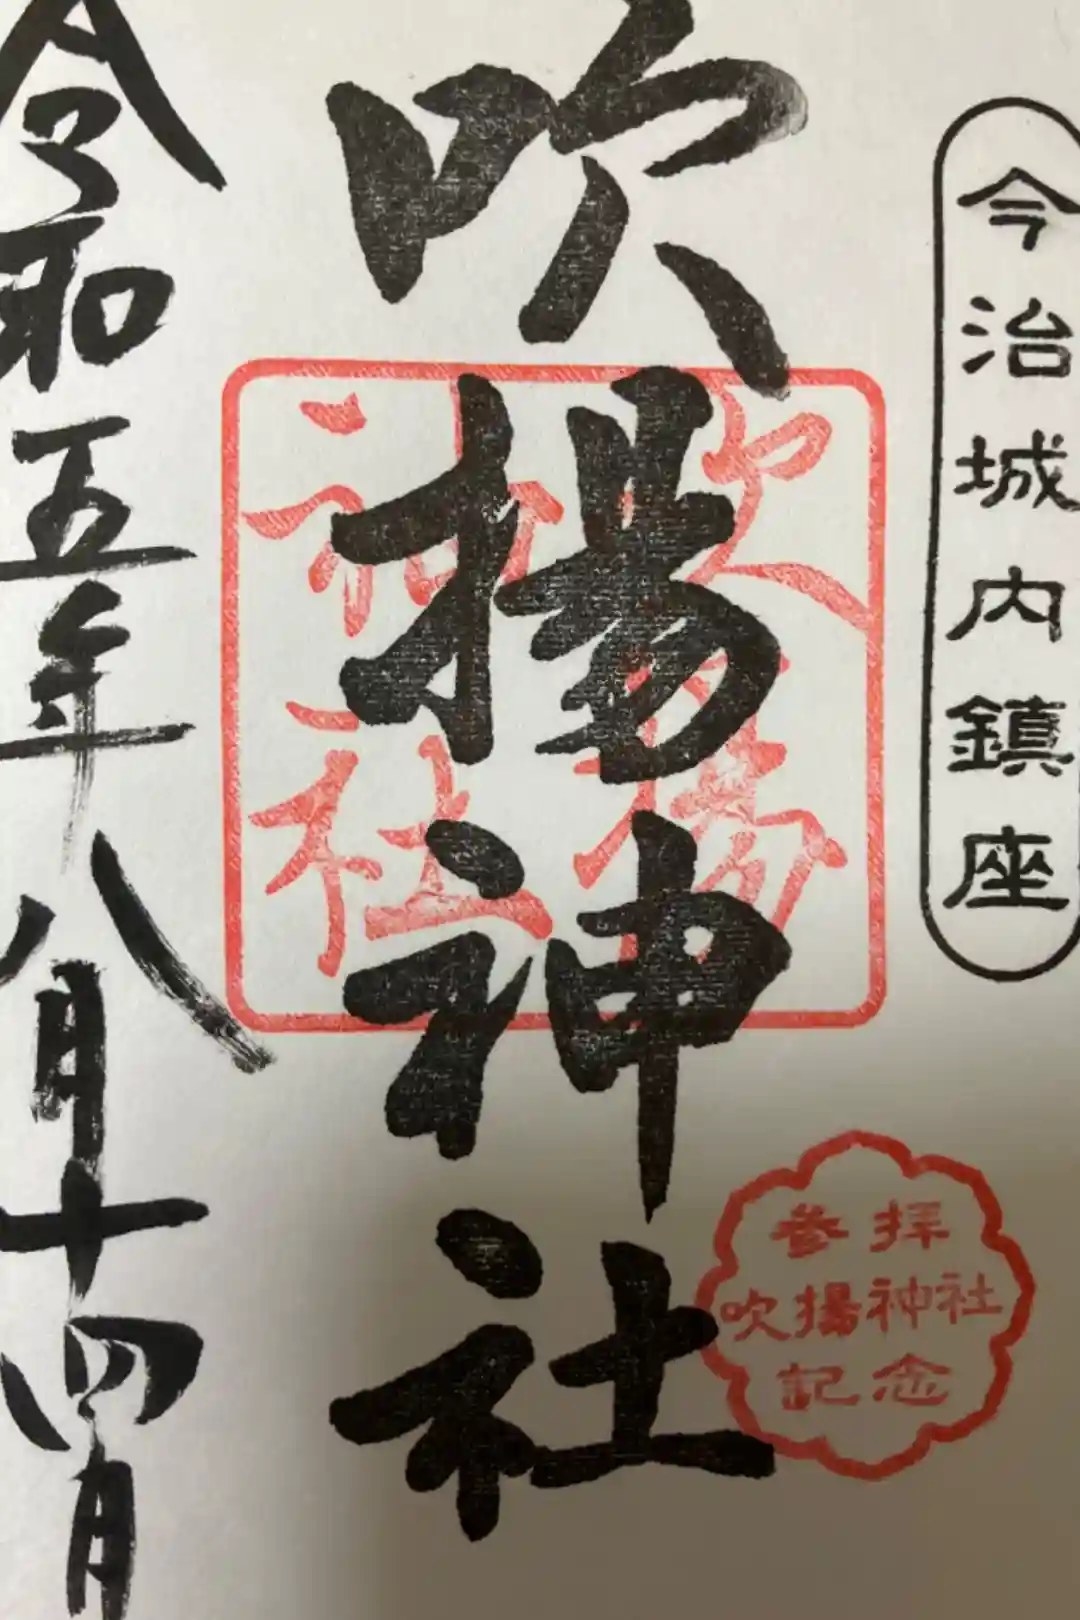 今治城内鎮座
吹揚神社
吹揚
神社
参拝
吹揚神社
記念
令和五年八月十四日